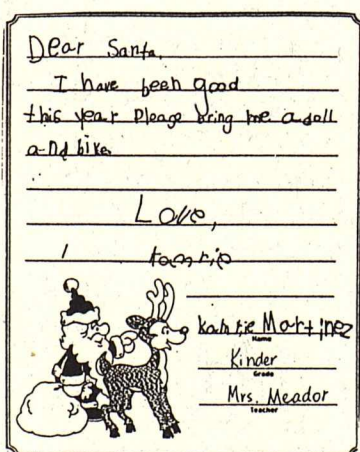 Dear Santa,
I have been good
this year Please bring me a doll
and bike
Love,
Martinez
Name
Kinder
Grade
Mrs. Meador
Teacher